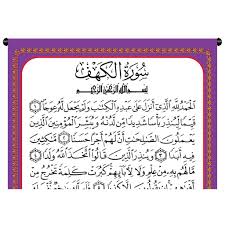 سُورَةُ الْكَهْفِ
بِسْمِ اللَّهِ الرَّحْمَٰنِ الرَّحِيمِ
الْحَمْدُ لِلَّهِ الَّذِي أَنزَلَ عَلَىٰ عَبْدِهِ الْكِتَابَ وَلَمْ يَجْعَل لَّهُ عِوَجَا ۝١
قَيِّمًا لِّيُنذِرَ بَأْسًا شَدِيدًا مِّن لَّدُنْهُ وَيُبَشِّرَ الْمُؤْمِنِينَ الَّذِينَ
يَعْمَلُونَ الصَّالِحَاتِ أَنَّ لَهُمْ أَجْرًا حَسَنًا ۝٢ مَّاكِثِينَ
فِيهِ أَبَدًا ۝٣ وَيُنذِرَ الَّذِينَ قَالُوا اتَّخَذَ اللَّهُ وَلَدًا ۝٤
مَّا لَهُم بِهِ مِنْ عِلْمٍ وَلَا لِآبَائِهِمْ كَبُرَتْ كَلِمَةً تَخْرُجُ مِنْ